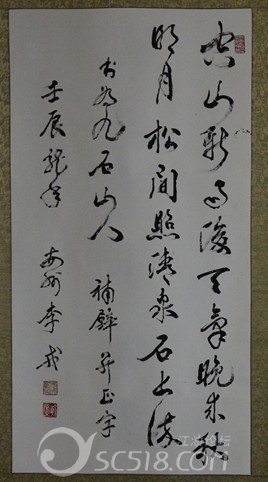 空山新雨後天氣晚来秋
明月松間照清泉石上流
书为九石山人 補壁并正字
壬辰龍年 州李
SC518.com